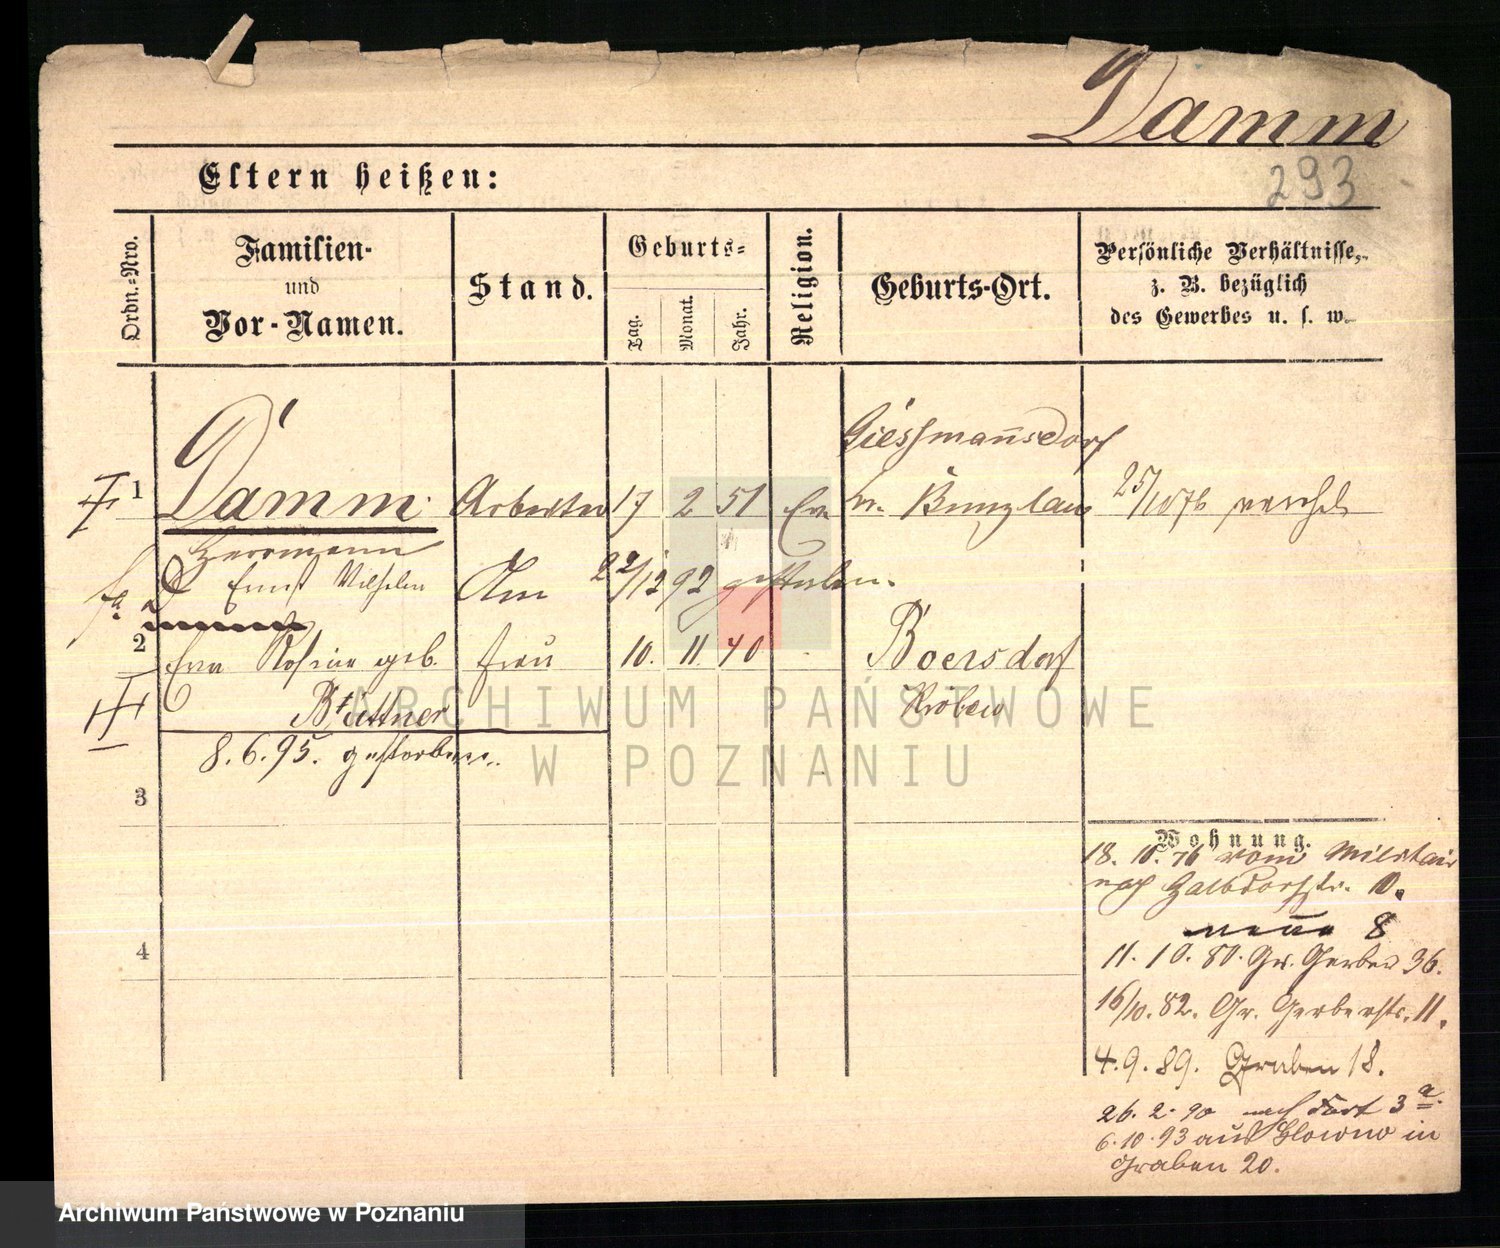 Damm
293
Eltern heißen:
Ordn.-Nro.
Familien-
und
Vor-Namen.
Stand.
Geburts-
Tag.
Monat.
Jahr.
Religion.
Geburts-Ort.
Persönliche Verhältnisse,
z. B. bezüglich
des Gewerbes u. s. w.
Giessmannsdorf
1 Damm Arbeiter 17 2 51 Ev. Kr. Bunzlau 25/10 76
Herrmann
Ernst Wilhelm 22/12 92 gestorben.
2 Eva Rosina geb. Frau 10. 11. 40 Boersdorf
Büttner Kröben
8.6.95. gestorben.
3
Wohnung.
18. 10. 76 vom Militair
nach Halbdorfstr. 10.
neue 8
4
11. 10. 80. Gr. Gerber 36.
16/10. 82. Gr. Gerberstr. 11.
4. 9. 89. Graben 18.
26. 2. 90 nach dort 3 a.
6. 10. 93 aus Glowno in
Graben 20.
ARCHIWUM PAŃSTWOWE
W POZNANIU
Archiwum Państwowe w Poznaniu